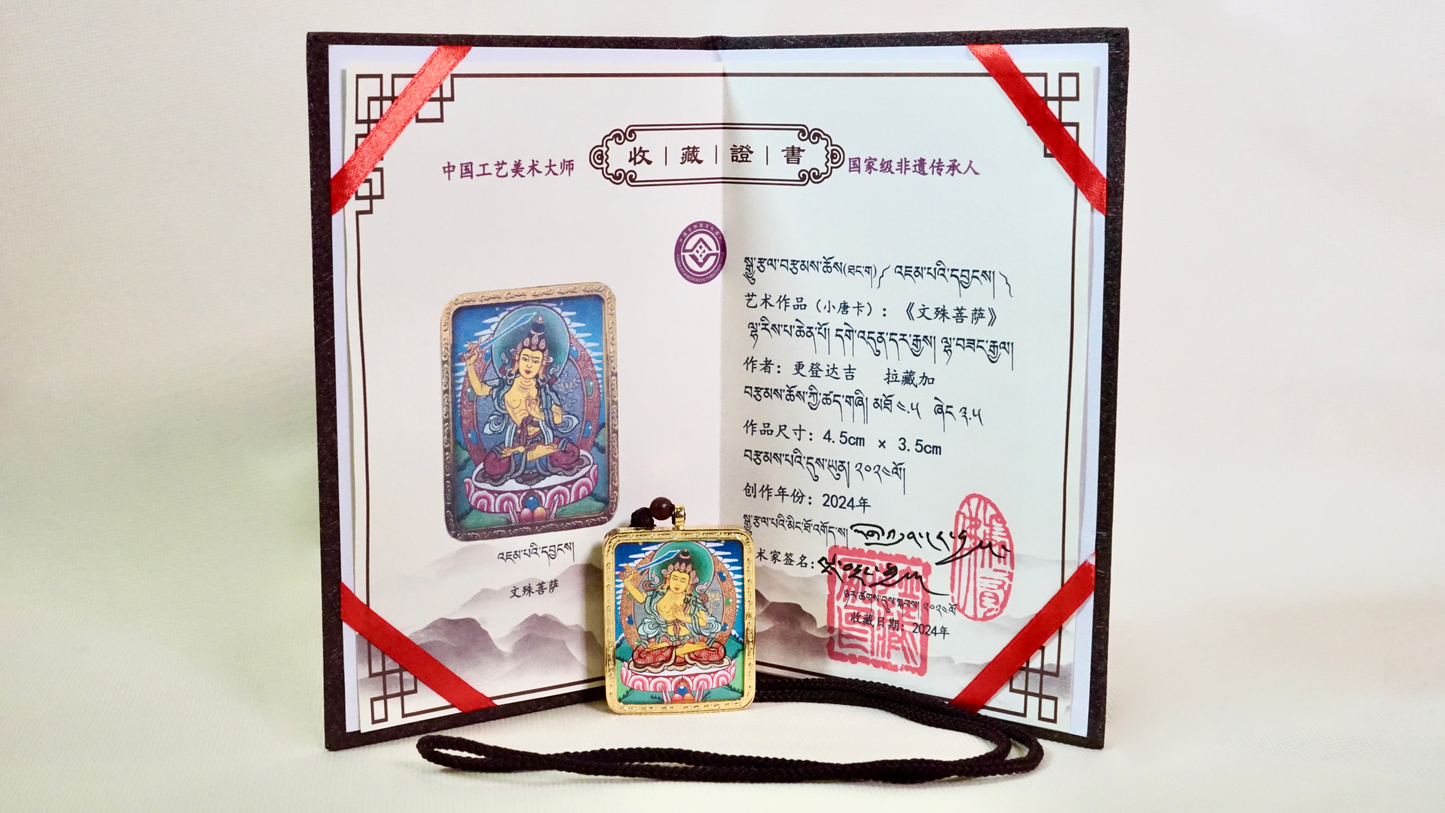 收藏證書
中国工艺美术大师
国家级非遗传承人
འཇམ་པའི་དབྱངས།
文殊菩萨
སྒྱུ་རྩལ་བརྩམས་ཆོས(ཐང་ག)༼ འཇམ་པའི་དབྱངས། ༽
艺术作品（小唐卡）：《文殊菩萨》
ལྷ་རིས་པ་ཆེན་པོ། དགེ་འདུན་དར་རྒྱས། ལྷ་བཟང་རྒྱལ།
作者：更登达吉 拉藏加
བརྩམས་ཆོས་ཀྱི་ཚད་གཞི། མཐོ ༤.༥ ཞེང ༣.༥
作品尺寸：4.5cm × 3.5cm
བརྩམས་པའི་དུས་ཡུན། ༢༠༢༤ལོ།
创作年份：2024年
སྒྱུ་རྩལ་པའི་མིང་ཐོ་འགོད་ས།
术家签名：
༢༠༢༤ལོ
收藏日期：2024年